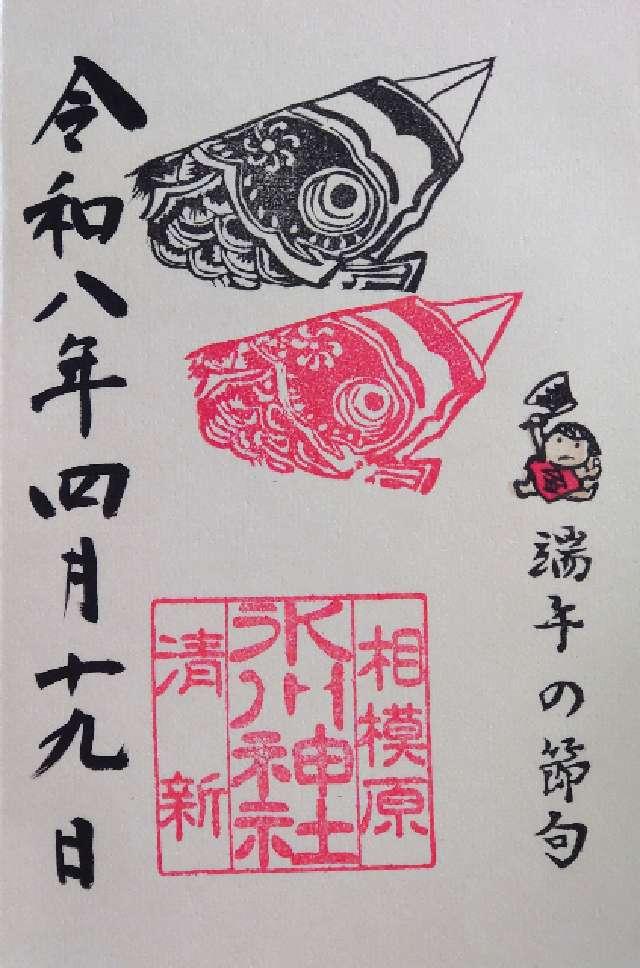 端午の節句
相模原
氷川神社
清新
令和八年四月十九日